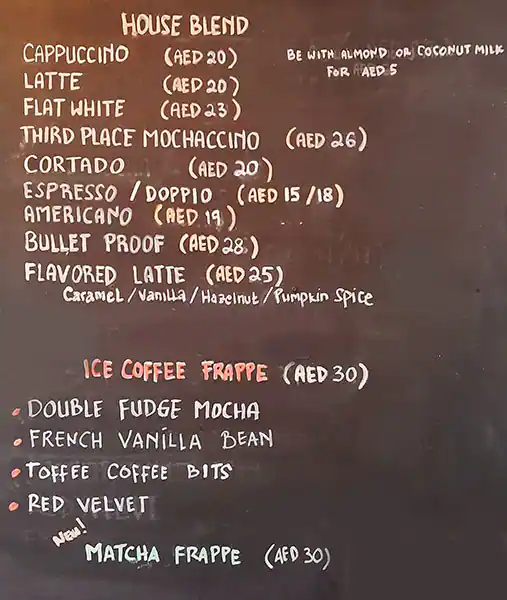 HOUSE BLEND
CAPPUCCINO (AED 20)
BE WITH ALMOND OR COCONUT MILK
FOR AED 5
LATTE (AED 20)
FLAT WHITE (AED 23)
THIRD PLACE MOCHACCINO (AED 26)
CORTADO (AED 20)
ESPRESSO / DOPPIO (AED 15 /18)
AMERICANO (AED 19)
BULLET PROOF (AED 28)
FLAVORED LATTE (AED 25)
Caramel / Vanilla / Hazelnut / Pumpkin Spice
ICE COFFEE FRAPPE (AED 30)
• DOUBLE FUDGE MOCHA
• FRENCH VANILLA BEAN
• TOFFEE COFFEE BITS
• RED VELVET
NEW!
MATCHA FRAPPE (AED 30)